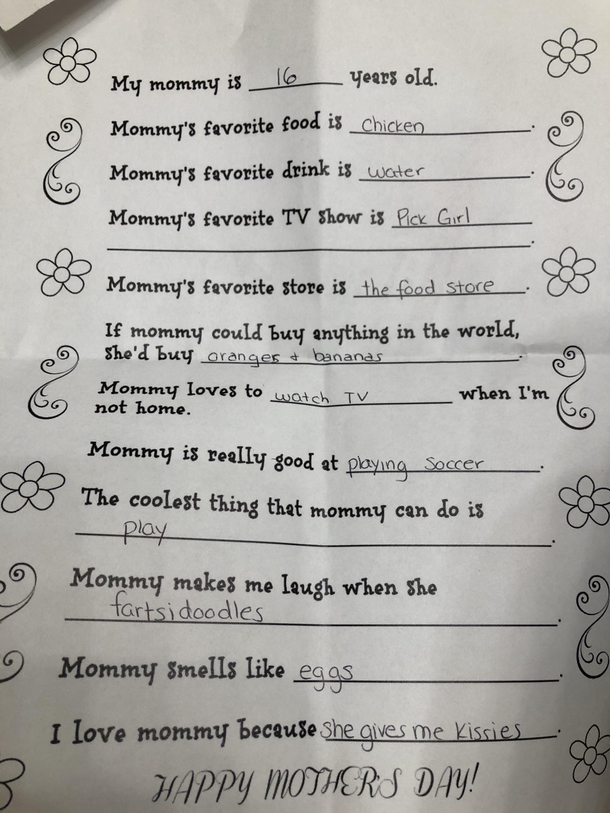 My mommy is 16 years old.
Mommy's favorite food is Chicken.
Mommy's favorite drink is water.
Mommy's favorite TV show is Pick Girl
.
Mommy's favorite store is the food store.
If mommy could buy anything in the world,
she'd buy oranges + bananas.
Mommy loves to watch TV when I'm
not home.
Mommy is really good at playing soccer.
The coolest thing that mommy can do is
play.
Mommy makes me laugh when she
fartsidoodles.
Mommy smells like eggs.
I love mommy because she gives me kissies.
HAPPY MOTHERS DAY!